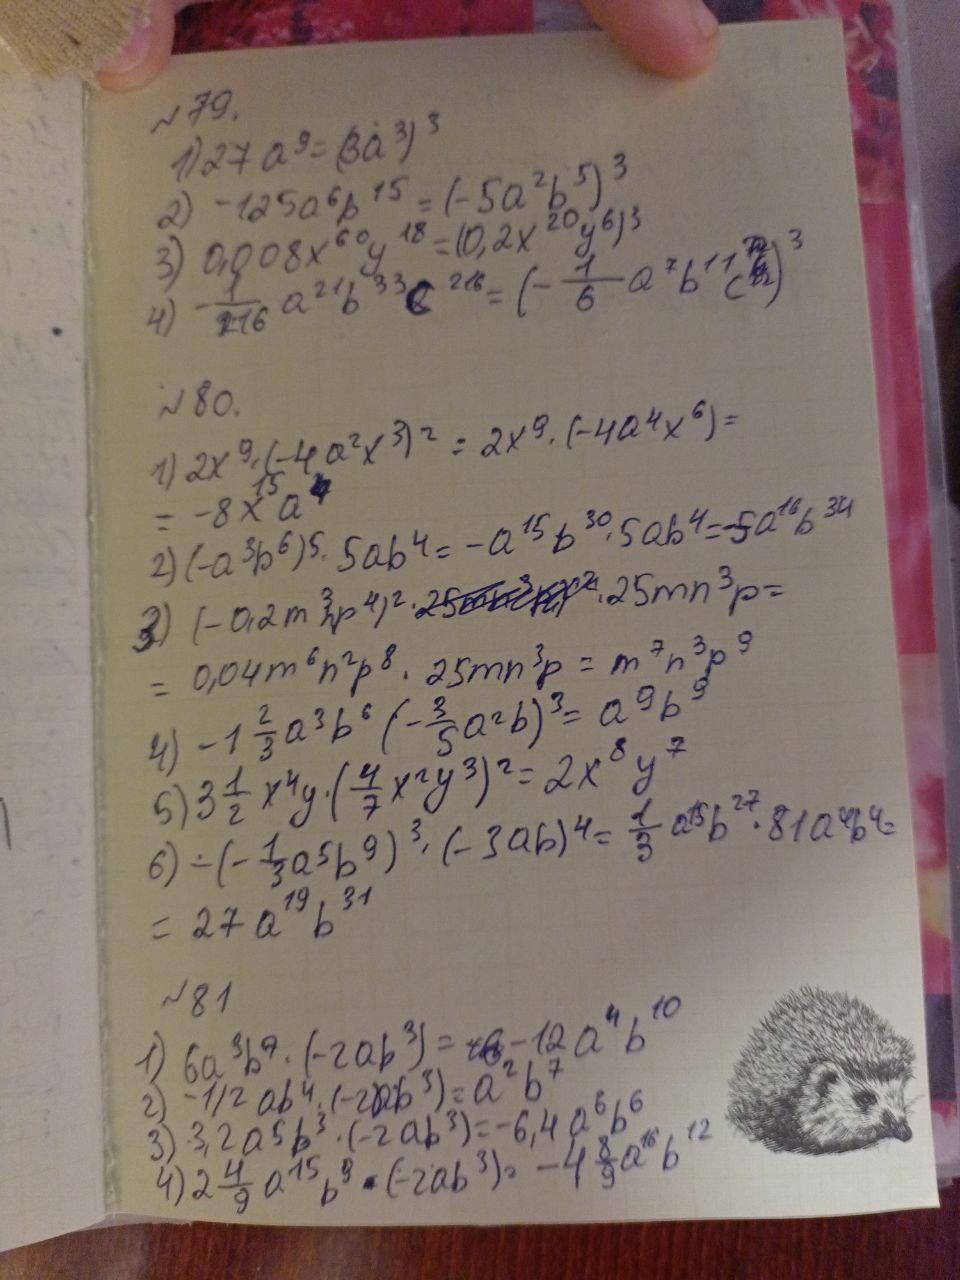 №79.
1) 27a⁹ = (3a³)³
2) -125a⁶b¹⁵ = (-5a²b⁵)³
3) 0,008x⁶⁰y¹⁸ = (0,2x²⁰y⁶)³
4) -1/216 a²¹b³³c²¹⁶ = (-1/6 a⁷b¹¹c⁷²)³
№80.
1) 2x⁹·(-4a²x³)² = 2x⁹·(-4a⁴x⁶) =
= -8x¹⁵a⁴
2) (-a³b⁶)⁵·5ab⁴ = -a¹⁵b³⁰·5ab⁴ = -5a¹⁶b³⁴
3) (-0,2m³np⁴)²·25mn³p =
= 0,04m⁶n²p⁸·25mn³p = m⁷n³p⁹
4) -1 2/3 a³b⁶ (-3/5 a²b)³ = a⁹b⁹
5) 3 1/2 x⁴y·(4/7 x²y³)² = 2x⁸y⁷
6) -(-1/3 a⁵b⁹)³·(-3ab)⁴ = 1/3 a¹⁵b²⁷·81a⁴b⁴ =
= 27a¹⁹b³¹
№81
1) 6a³b⁷·(-2ab³) = -12a⁴b¹⁰
2) -1/2 ab⁴·(-2ab³) = a²b⁷
3) 3,2a⁵b³·(-2ab³) = -6,4a⁶b⁶
4) 2 4/9 a¹⁵b⁹·(-2ab³) = -4 8/9 a¹⁶b¹²